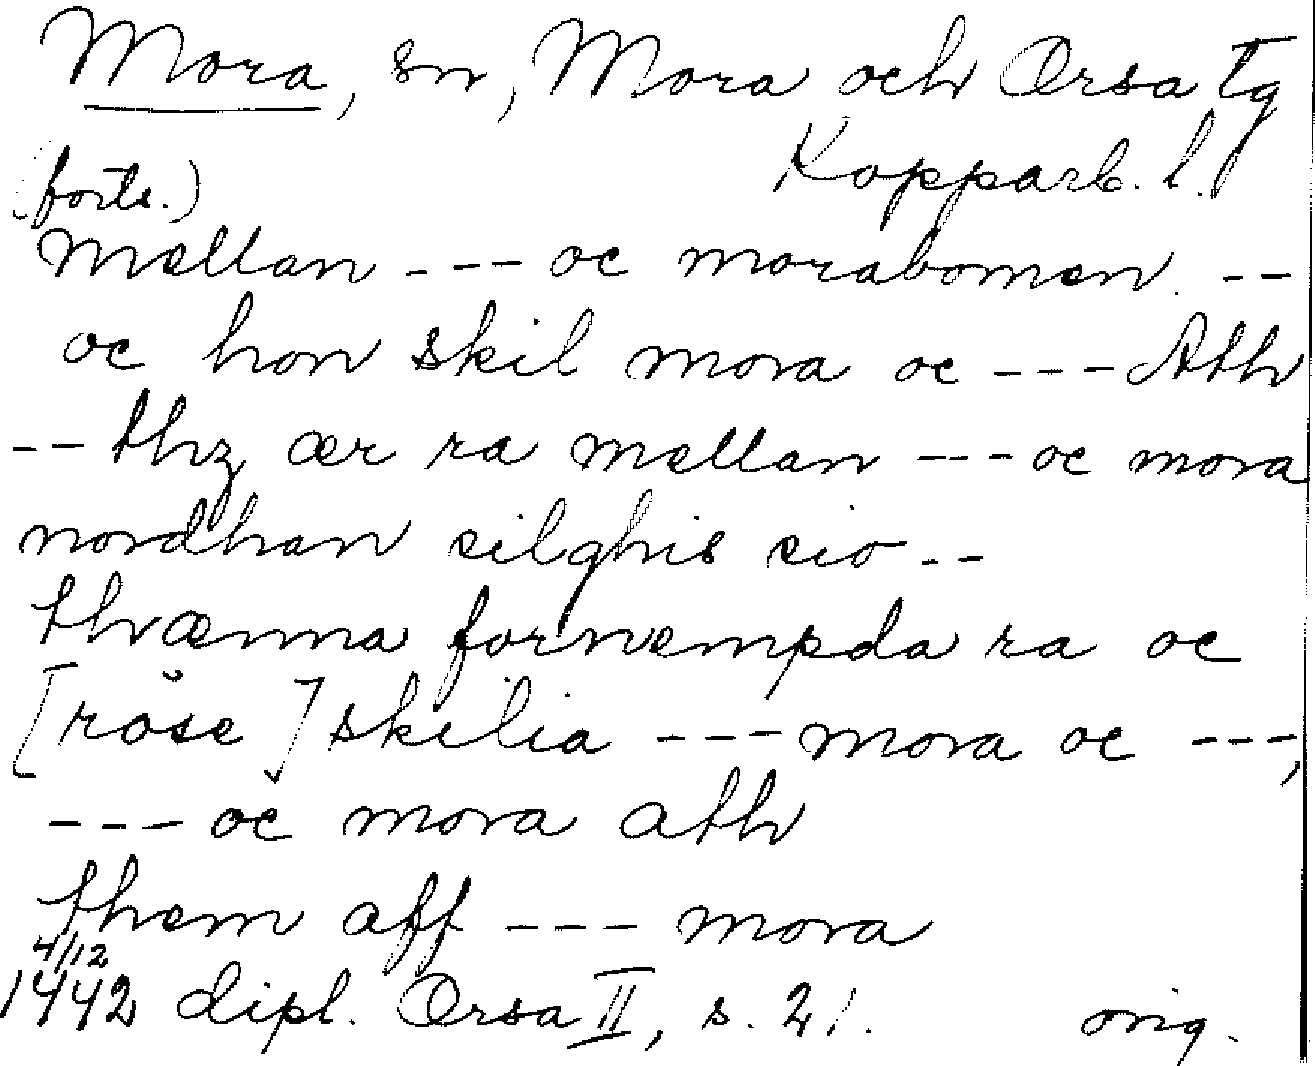 Mora, sn, Mora och Orsa tg
Kopparb. l.
(forts.)
mellan --- oc morabomen --
oc hon skil mora oc --- Ath
-- thz ær ra mellan --- oc mora
nordhan silghis sio --
thvænna fornempda ra oc
[röse] skilia --- mora oc ---,
--- oc mora ath
them aff --- mora
4/12
1442 dipl. Orsa II, s. 21. orig.